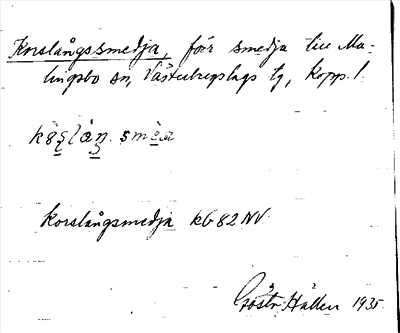 Korslångssmedja, förr smedja till Ma-
lingsbo sn, Västerbergslags tg, Kopp. l.
Korslångsmedja KG 82 NV
Göstr. Hällen 1935